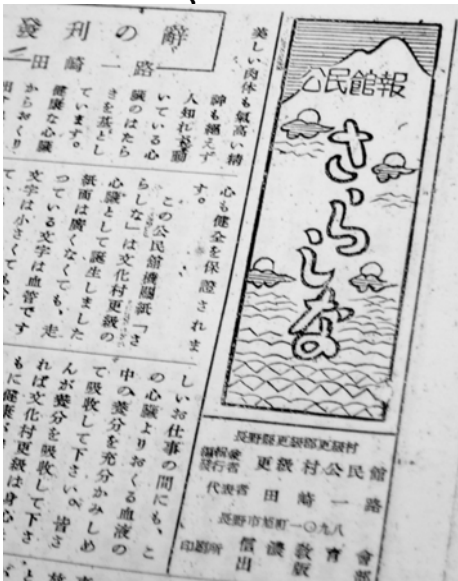 公民館報
さらしな
長野縣更級郡更級村
編輯兼
発行者 更級村公民館
代表者 田崎一路
長野市旭町一〇九八
印刷所 信濃教育會
出版部
發刊の辭
田崎一路
美しい肉体も氣高い精
神も絶えず
人知れず動
いている心
臓のはたら
きを基とし
ています。
健康な心臓
からおくり
心も健全を保證されま
す。
この公民館機關紙「さ
らしな」は文化村更級の
心臓として誕生しました
紙面は廣くなくても、走
つている文字は血管です
文字は小さくても
しいお仕事の間にも、こ
の心臓よりおくる血液の
中の養分を充分かみしめ
て吸收して下さい。皆さ
んが養分を吸收して下さ
れば文化村更級は身心と
もに健康が